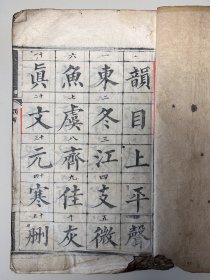 韻目上平聲
一東二冬三江四支五微
六魚七虞八齊九佳十灰
十一眞十二文十三元十四寒十五刪